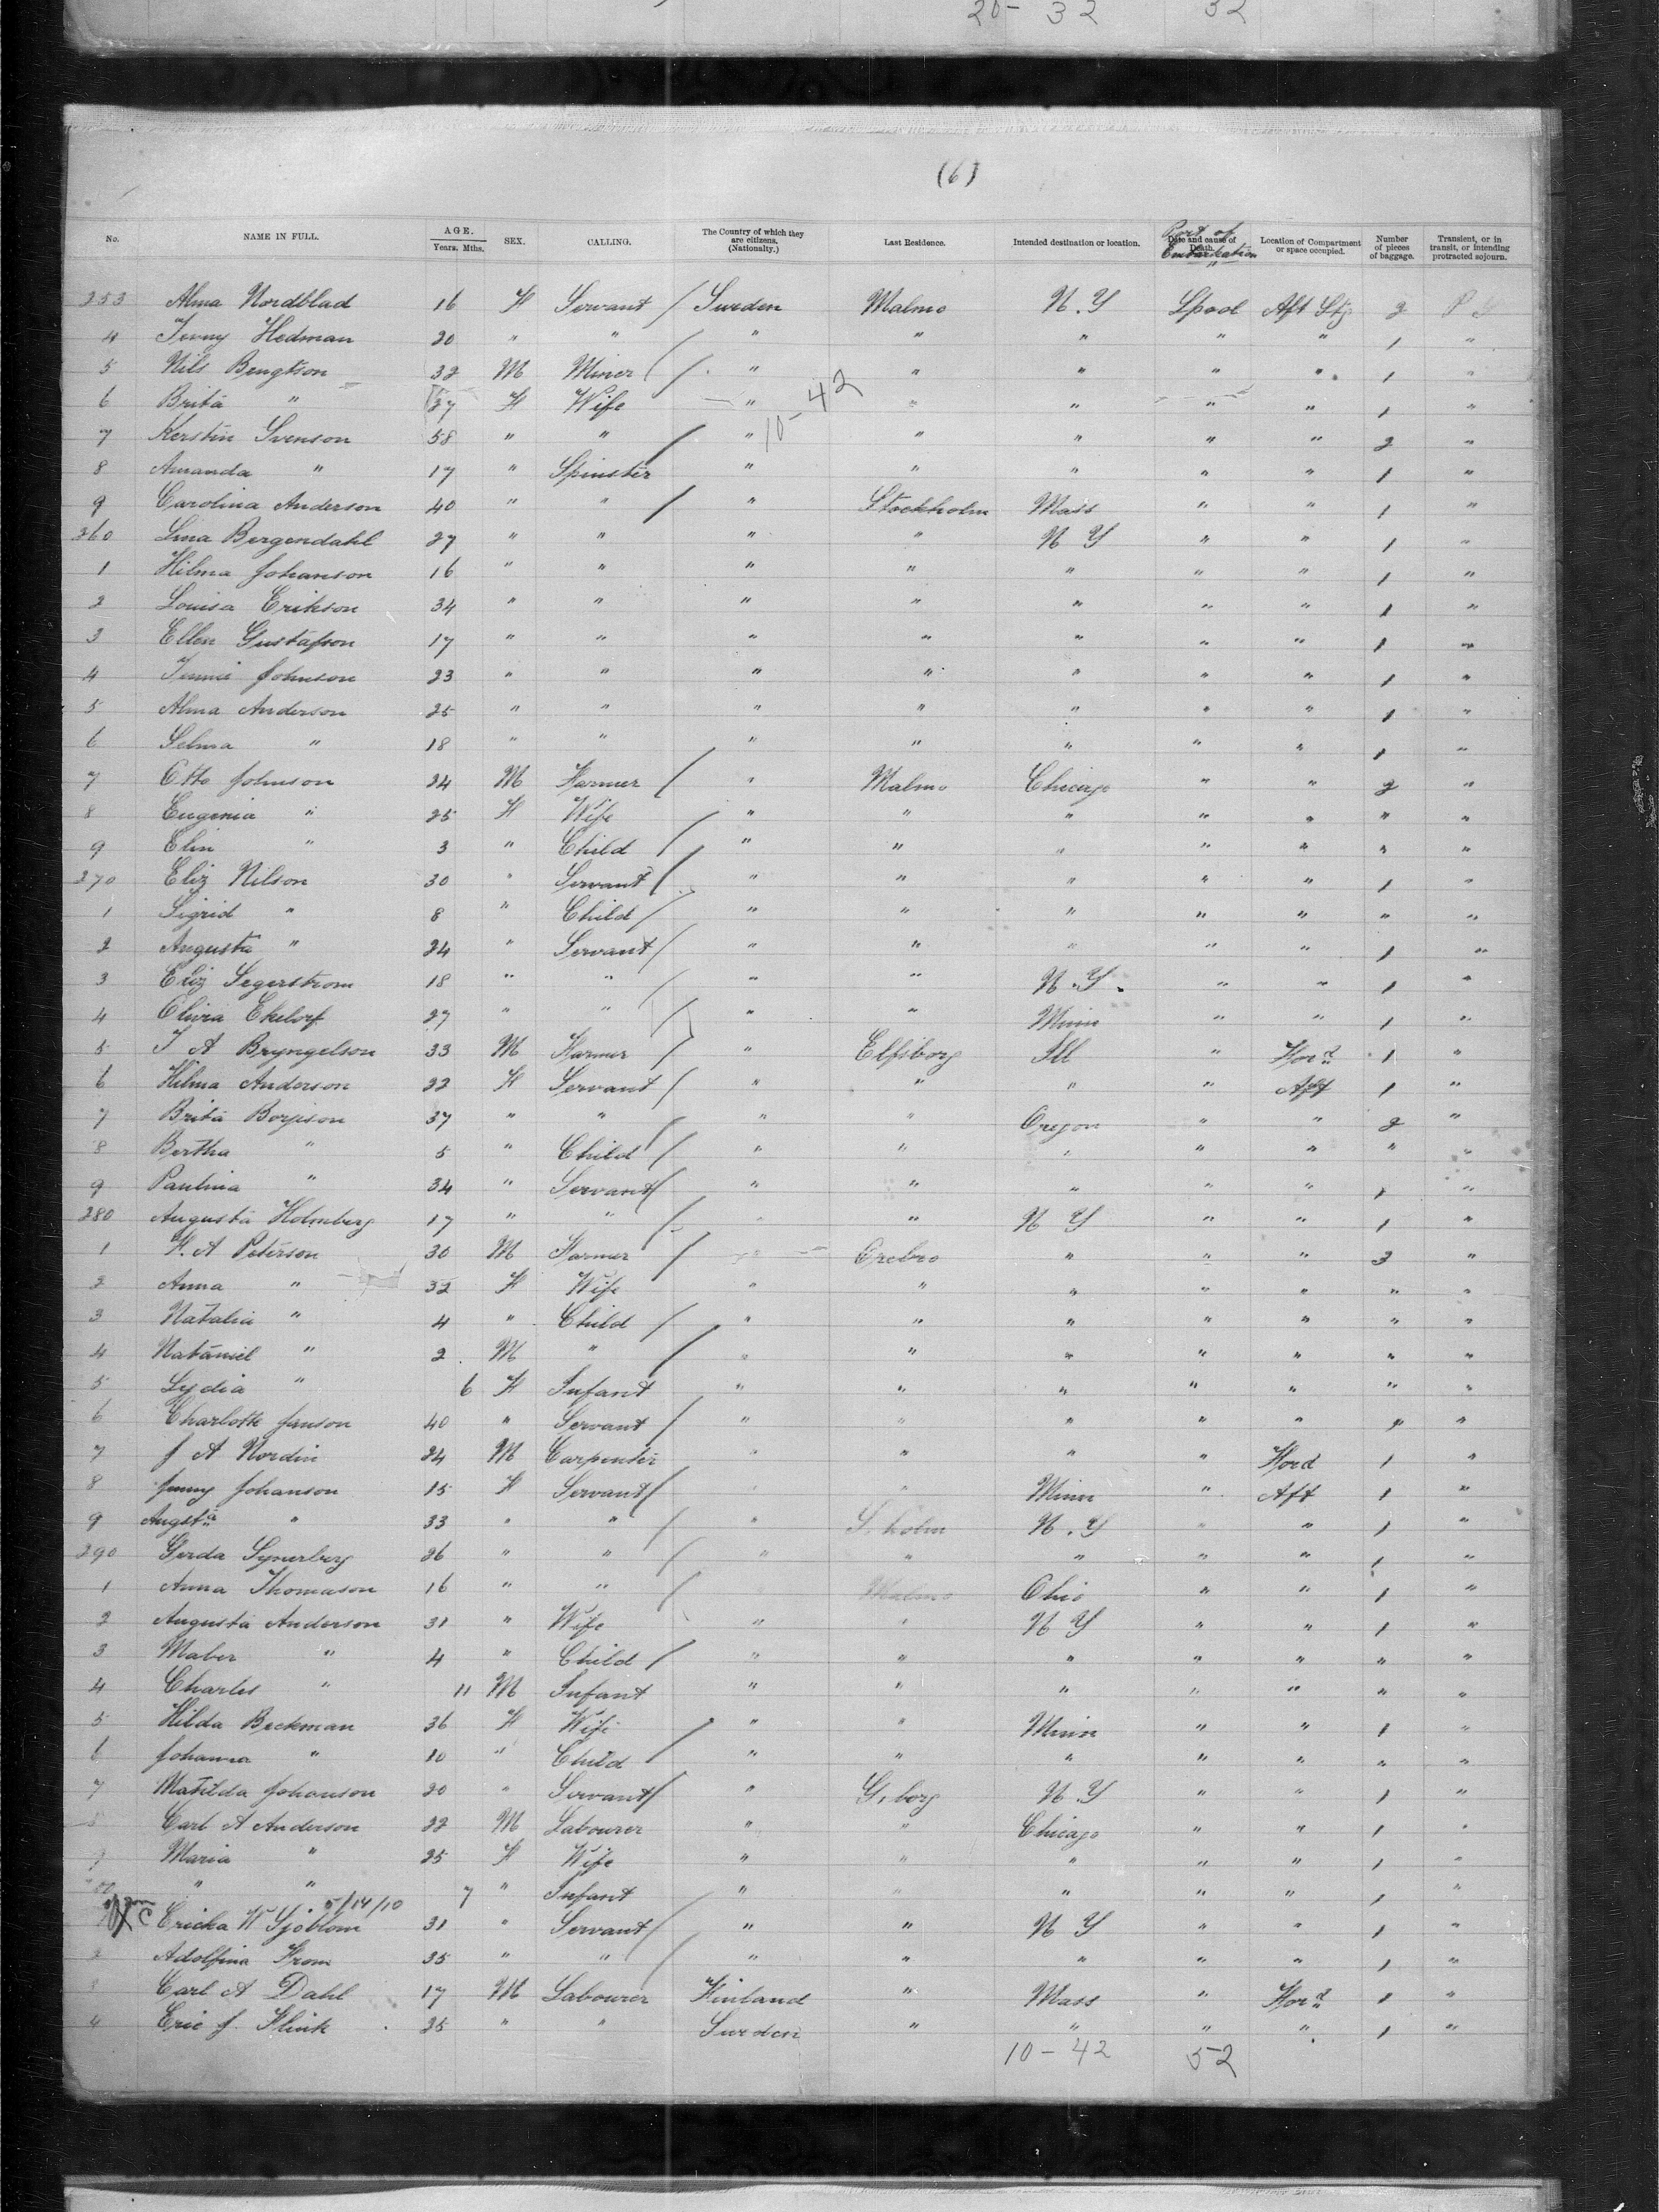 20- 32 52
(6)
No. NAME IN FULL. AGE. Years. Mths. SEX. CALLING. The Country of which they are citizens. (Nationalty.) Last Residence. Intended destination or location. Date and cause of Death. Port of Embarkation Location of Compartment or space occupied. Number of pieces of baggage. Transient, or in transit, or intending protracted sojourn.
253 Alma Nordblad 16 F Servant / Sweden Malmo N.Y Lpool Aft Stg 2 P S
4 Jenny Hedman 20 " " / " " " " " 1 "
5 Nils Bengtson 32 M Miner / " " " " " 1 "
6 Brita " 27 F Wife " " " " " 1 "
10-42
7 Kerstin Svenson 58 " " / " " " " " 2 "
8 Amanda " 17 " Spinster " " " " " 1 "
9 Carolina Anderson 40 " " / " Stockholm Mass " " 1 "
260 Lina Bergendahl 27 " " " " N Y " " 1 "
1 Hilma Johanson 16 " " " " " " " 1 "
2 Louisa Erikson 34 " " " " " " " 1 "
3 Ellen Gustafson 17 " " " " " " " 1 "
4 Jennie Johnson 23 " " " " " " " 1 "
5 Alma Anderson 25 " " " " " " " 1 "
6 Selma " 18 " " " " " " " 1 "
7 Otto Johnson 24 M Farmer / " Malmo Chicago " " 2 "
8 Eugenia " 25 F Wife " " " " " " "
9 Elin " 3 " Child / " " " " " " "
270 Eliz Nilson 30 " Servant / " " " " " 1 "
1 Sigrid " 8 " Child / " " " " " " "
2 Augusta " 24 " Servant / " " " " " 1 "
3 Eliz Segerstrom 18 " " / " " N.Y. " " 1 "
4 Olivia Ekelorf 27 " " / " " Minn " " 1 "
5 J A Bryngelson 33 M Farmer / " Elfsborg Ill " For'd 1 "
6 Hilma Anderson 22 F Servant / " " " " Aft 1 "
7 Brita Borjeson 37 " " / " " Oregon " " 2 "
8 Bertha " 5 " Child / " " " " " " "
9 Paulina " 34 " Servant / " " " " " 1 "
280 Augusta Holmberg 17 " " / " " N Y " " 1 "
1 F. A Peterson 30 M Farmer / " Orebro " " " 3 "
2 Anna " 32 F Wife " " " " " " "
3 Natalia " 4 " Child / " " " " " " "
4 Nataniel " 2 M " / " " " " " " "
5 Lydia " 6 F Infant " " " " " " "
6 Charlotte Janson 40 " Servant / " " " " " 1 "
7 J A Nordin 24 M Carpenter " " " " Ford 1 "
8 Jenny Johanson 15 F Servant / " " Minn " Aft 1 "
9 Augsta " 33 " " / " S. holm N.Y " " 1 "
290 Gerda Synerberg 26 " " / " " " " " 1 "
1 Anna Thomason 16 " " / Malmo Ohio " " 1 "
2 Augusta Anderson 31 " Wife " " N Y " " 1 "
3 Maber " 4 " Child / " " " " " " "
4 Charles " 11 M Infant " " " " " " "
5 Hilda Beckman 36 F Wife / " " Minn " " 1 "
6 Johanna " 10 " Child / " " " " " " "
7 Matilda Johanson 20 " Servant / " G. borg N.Y " " 1 "
8 Carl A Anderson 22 M Labourer " " Chicago " " 1 "
9 Maria " 25 F Wife " " " " " 1 "
" " 7 " Infant " " " " " 1 "
5/14/10
Ericka W Sjoblom 31 " Servant / " " N Y " " 1 "
2 Adolfina From 35 " " / " " " " " 1 "
3 Carl A Dahl 17 M Labourer Finland " Mass " For'd 1 "
4 Eric J. Flink 25 " " Sweden " " " " 1 "
10-42 52